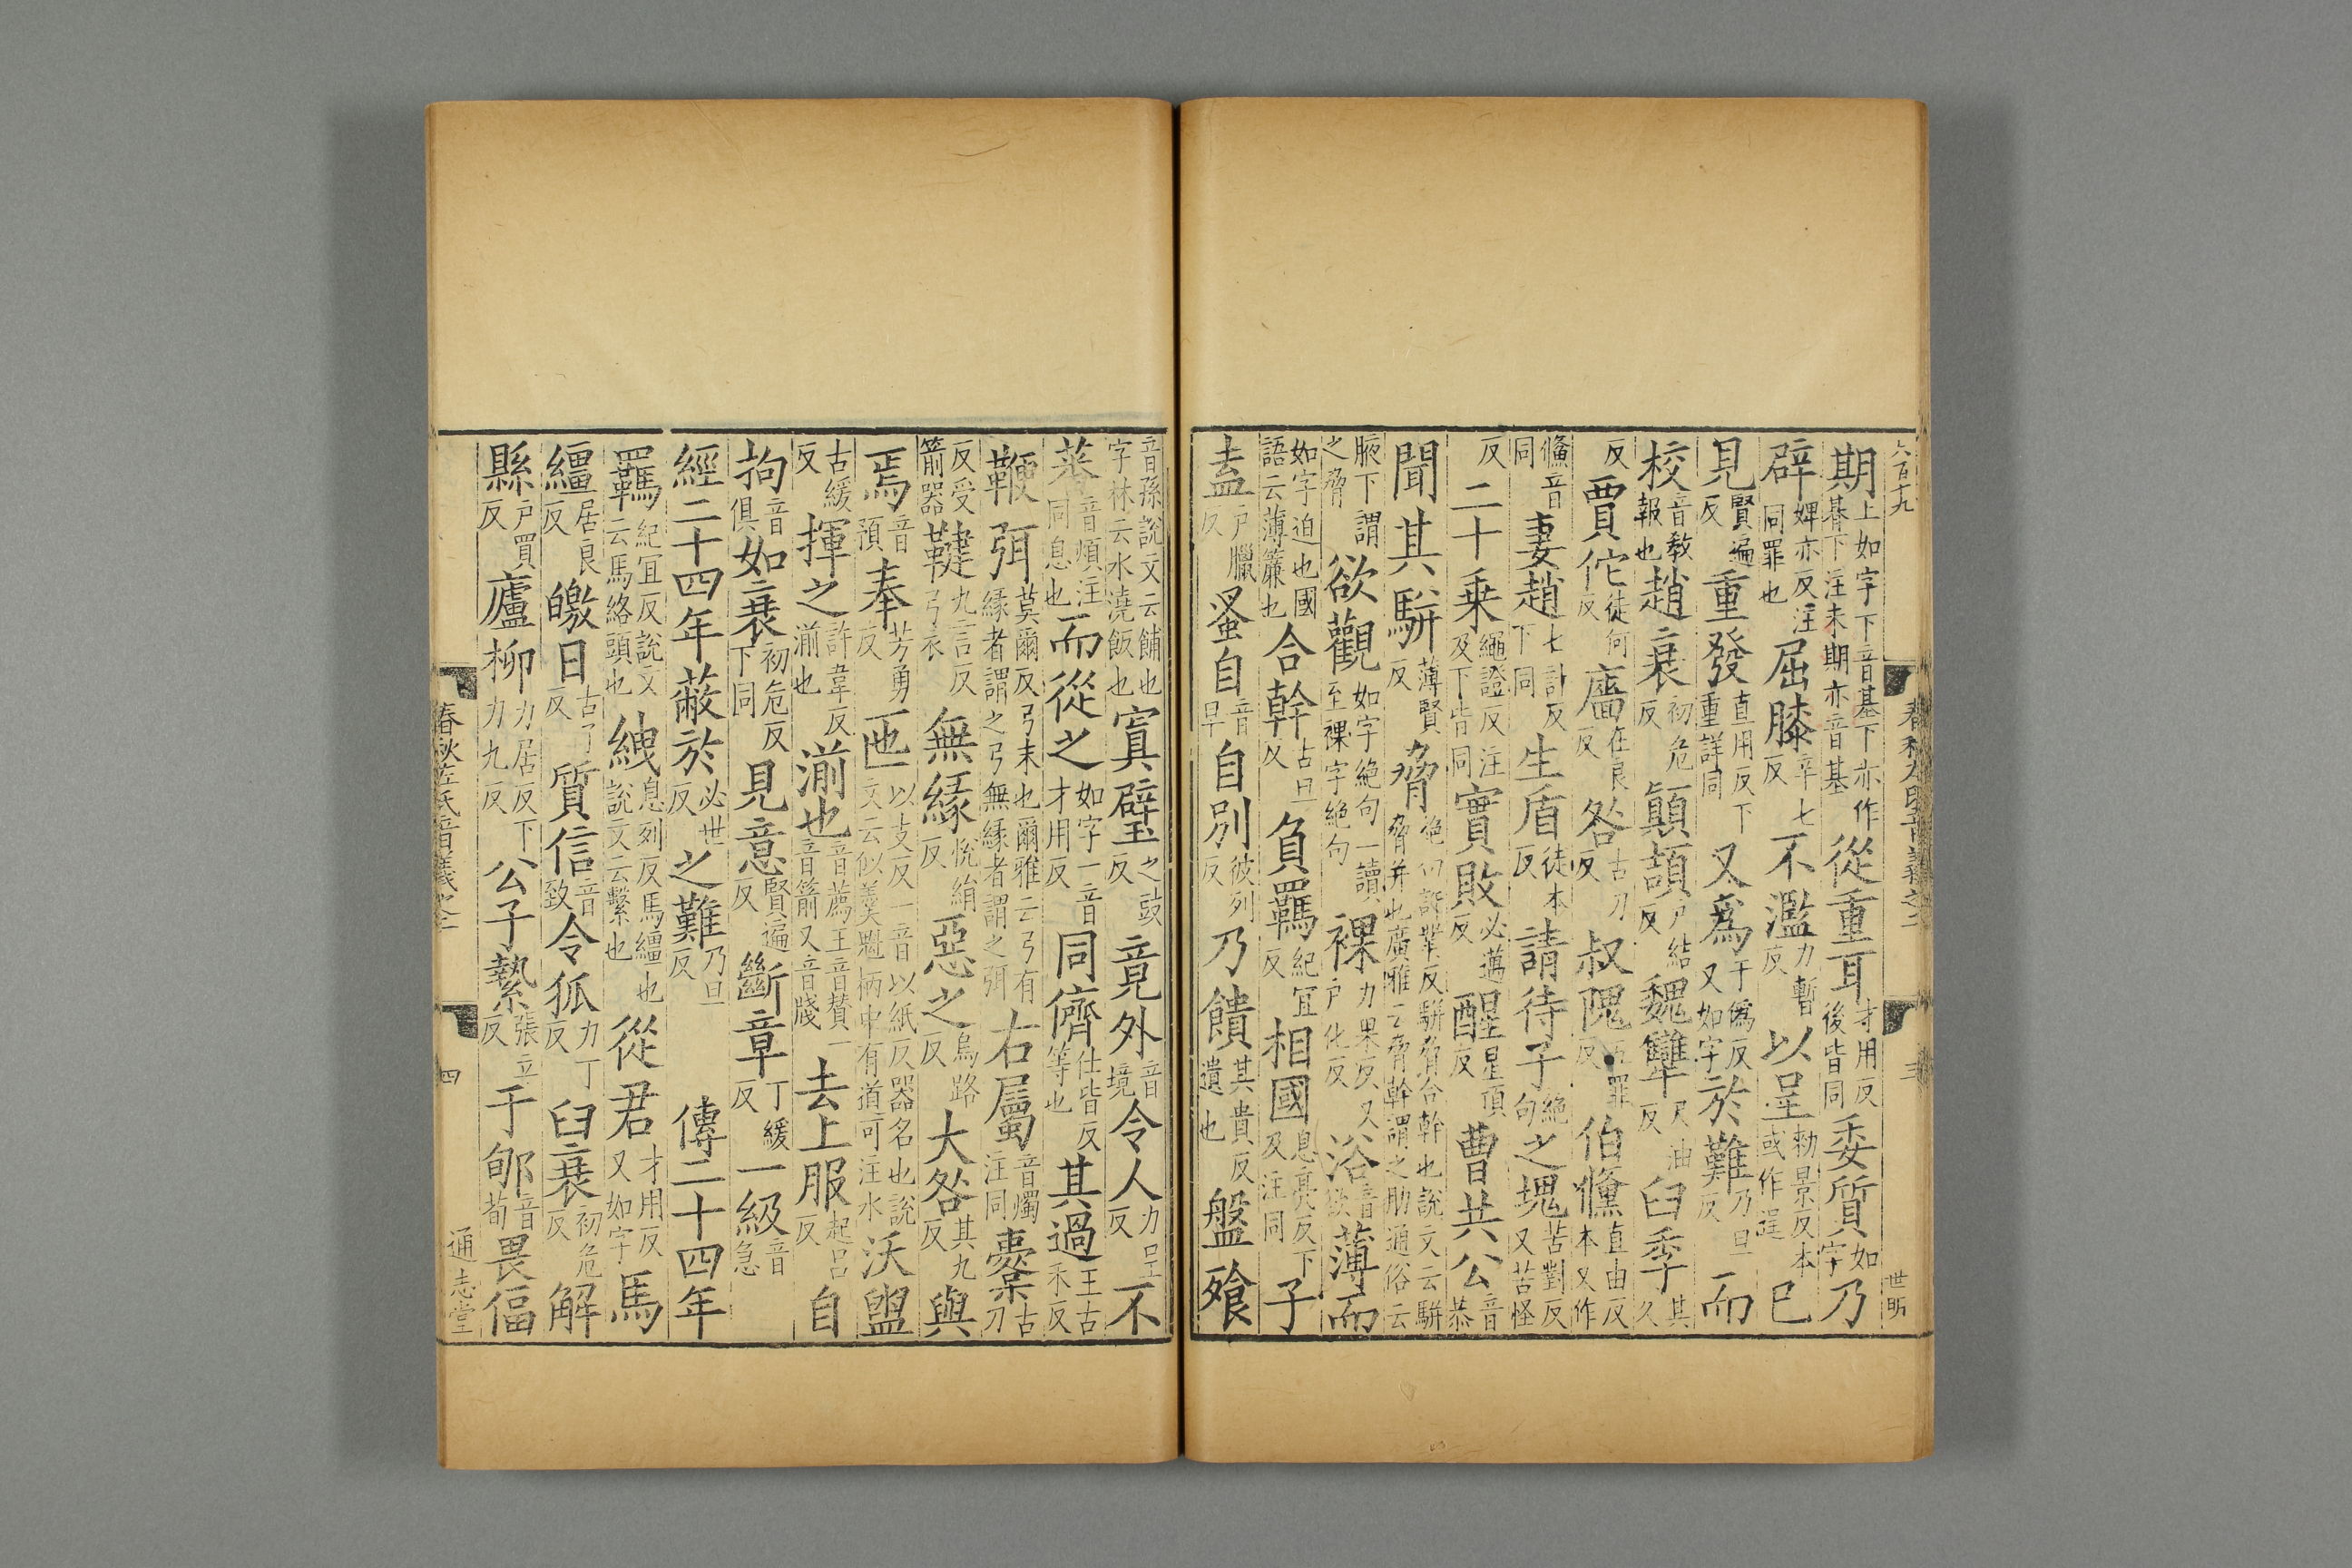 六百十九
世明
期上如字下音基下亦作朞下注未期亦音基從重耳才用反後皆同委質如字乃
辟婢亦反注同罪也屈膝辛七反不濫力暫反以呈勑景反本或作逞已
見賢遍反重發直用反下重詳同又爲于僞反又如字於難乃旦反而
校音敎報也趙衰初危反顚頡戸結反魏犫尺由反臼季其久
反賈佗徒何反廧在良反咎古刀反叔隗五罪反伯儵直由反本又作
鯈音同妻趙七計反下同生盾徒本反請待子絶句之塊苦對反又苦怪
反二十乗繩證反注及下皆同實敗必邁反醒星頂反曹共公音恭
聞其駢薄賢反脅絶句許業反駢脅合幹也說文云駢脅幷也廣雅云脅幹謂之肋通俗云
腋下謂之脅欲觀如字絶句一讀至裸字絶句裸力果反又戸化反浴音欲薄而
如字迫也國語云薄簾也合幹古旦反負羈紀宜反相國息亮反下及注同子
盍戸臘反蚤自音早自別彼列反乃饋其貴反遺也盤飱
音孫說文云餔也字林云水澆飯也寘璧之豉反竟外音境令人力呈反不
蕃音煩注同息也而從之如字一音才用反同儕仕皆反等也其過王古禾反
鞭弭莫爾反弓末也爾雅云弓有緣者謂之弓無緣者謂之弭右屬音燭注同櫜古刀
反受箭器鞬九言反弓衣無緣悅絹反惡之烏路反大咎其九反與
焉音預奉芳勇反匜以支反一音以紙反器名也說文云似羹魁柄中有道可注水沃盥
古緩反揮之許韋反湔也湔也音薦王音賛一音箭又音牋去上服起呂反自
拘音俱如衰初危反下同見意賢遍反斷章丁緩反一級音急
經二十四年蔽於必世反之難乃旦反傳二十四年
羈紀宜反說文云馬絡頭也紲息列反馬繮也說文云繫也從君才用反又如字馬
繮居良反皦日古了反質信音致令狐力丁反臼衰初危反解
縣戸買反廬柳力居反下力九反公子縶張立反于郇音荀畏偪
春秋左氏音義之二
四
通志堂